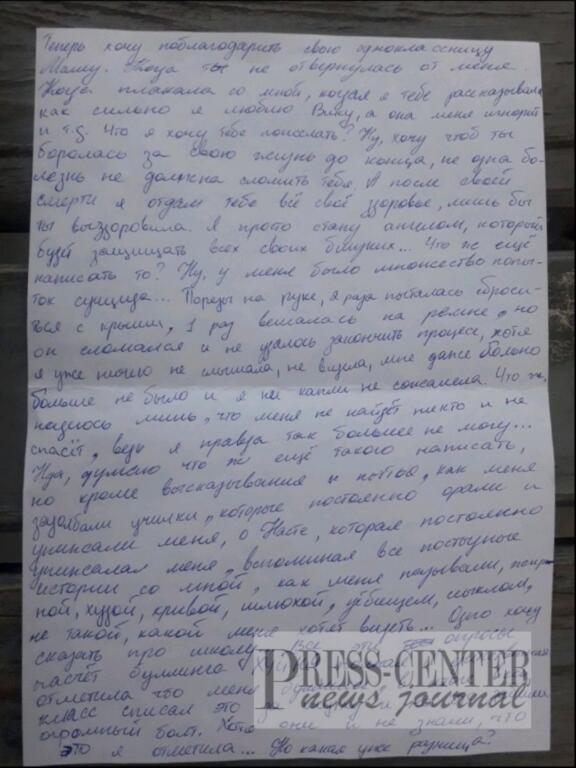 Теперь хочу поблагодарить свою одноклассницу
Машу. Тогда ты не отвернулась от меня.
Когда плакала со мной, когда я тебе рассказывала
как сильно я люблю Вику, а она меня игнорит
и т.д. Что я хочу тебе пожелать? Ну, хочу чтоб ты
боролась за свою жизнь до конца, не одна бо-
лезнь не должна сломить тебя. А после своей
смерти я отдам тебе всё своё здоровье, лишь бы
ты выздоровила. Я просто стану ангелом, который
будет защищать всех своих близких... Что же ещё
написать то? Ну, у меня было множество попы-
ток суицида... Порезы на руке, раза пыталась сброси-
ться с крыши, 1 раз вешалась на ремне, но
он сломался и не удалось закончить процесс, хотя
я уже ничего не слышала, не видела, мне даже больно
больше не было и я ни капли не сожалела. Что ж,
надеюсь лишь, что меня не найдёт никто и не
спасёт, ведь я правда так больше не могу...
Нда, думаю что ж ещё такого написать,
но кроме высказывания и как меня
задолбали училки, которые постоянно орали и
унижали меня, о Насте, которая постоянно
унижала меня, вспоминая все постыдные
истории со мной, как меня называли,
худой, кривой, шлюхой, убищем,
не такой, какой меня хотят видеть... Одно хочу
сказать про школу. Все эти опросы
насчёт буллинга
отметила что меня
класс списал это за
огромный болт. Хотя они и не знали, что
это я отметила... Но какая уже разница?
PRESS-CENTER
news journal